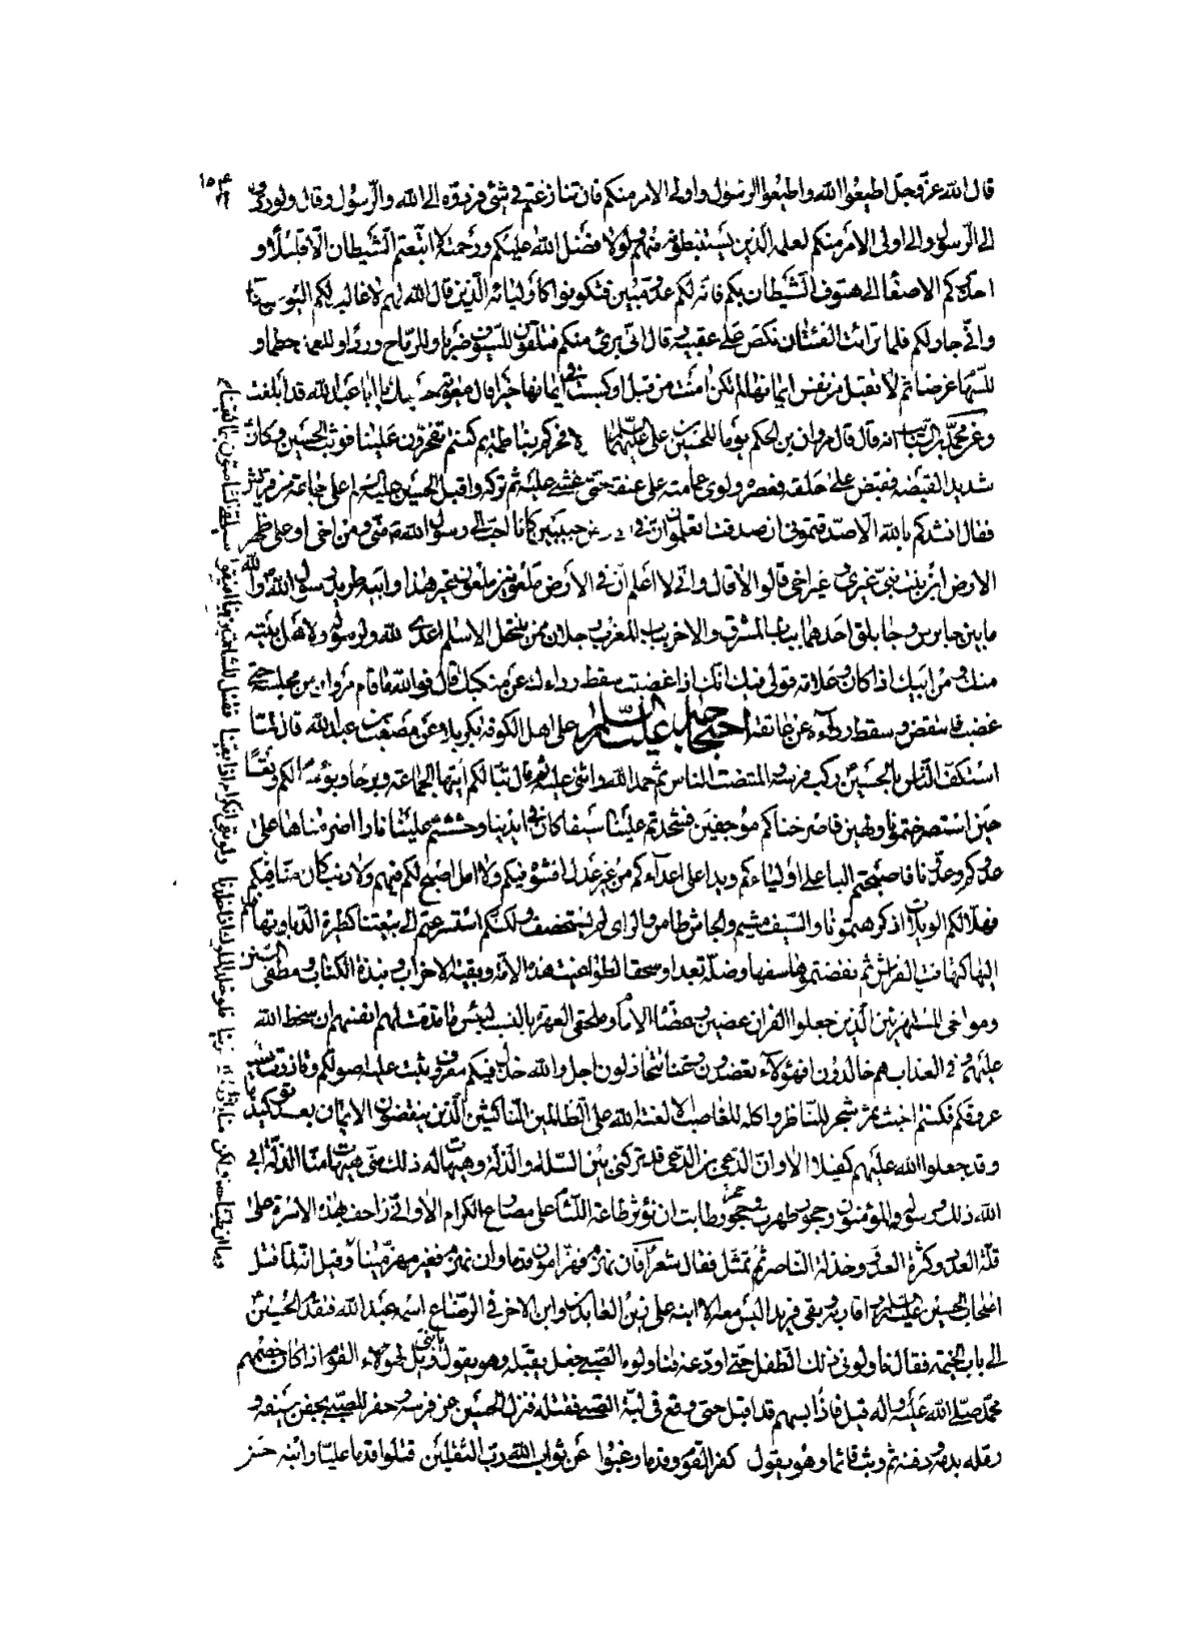 قال الله عز وجل اطيعوا الله واطيعوا الرسول واولى الامر منكم فان تنازعتم فى شئ فردوه الى الله والرسول وقال ولو ردوه
الى الرسول والى اولى الامر منكم لعلمه الذين يستنبطونه منهم ولولا فضل الله عليكم ورحمته لاتبعتم الشيطان الا قليلا و
احذركم الاصغاء الى هتوف الشيطان بكم فانه لكم عدو مبين فتكونوا كاوليائه الذين قال الله لهم لا غالب لكم اليوم
وانى جار لكم فلما ترائت الفئتان نكص على عقبيه قال انى برئ منكم فتلقون للسيوف ضربا وللرماح وردا وللعمد حطما و
للسهام غرضا ثم لا تقبل من نفس ايمانها لم تكن امنت من قبل او كسبت فى ايمانها خيرا قال معوية حسبك يا ابا عبد الله قد ابلغت
وعن محمد بن السائب انه قال قال مروان بن الحكم يوما للحسين بن على عليهما السلام لولا فخركم بفاطمة بم كنتم تفخرون علينا فوثب الحسين وكان
شديد القبضة فقبض على حلقه فعصره ولوى عمامته على عنقه حتى غشى عليه ثم تركه واقبل الحسين عليه السلام على جماعة من قريش
فقال انشدكم بالله الا صدقتمونى ان صدقت اتعلمون ان فى حبيبين كانا احب الى رسول الله منى ومن اخى او على ظهر
الارض ابن بنت نبى غيرى وغير اخى قالوا لا قال وانى لا اعلم ان فى الارض ملعون بن ملعون غير هذا وابيه طريد رسول الله والله
ما بين جابرس وجابلق احدهما بباب المشرق والاخر بباب المغرب رجلان ممن ينتحل الاسلام اعدى لله ولرسوله ولاهل بيته
منك ومن ابيك اذا كان وعلامة قولى فيك انك اذا غضبت سقط رداءك عن منكبك قال فوالله ما قام مروان من مجلسه حتى
غضب فانتقض وسقط رداءه عن عاتقه احتجاجه عليه السلام على اهل الكوفة بكربلا عن مصعب بن عبد الله قال لما
استكف الناس بالحسين ركب فرسه واستنصت الناس ثم حمد الله واثنى عليه ثم قال تبا لكم ايتها الجماعة وترحا وبؤسا لكم وتعسا
حين استصرختمونا ولهين فاصرخناكم موجفين فشحذتم علينا سيفا كان فى ايدينا وحششتم علينا نارا اضرمناها على
عدوكم وعدونا فاصبحتم البا على اوليائكم ويدا على اعدائكم من غير عدل افشوه فيكم ولا امل اصبح لكم فيهم ولا ذنب كان منا فيكم
فهلا لكم الويلات اذ كرهتمونا والسيف مشيم والجاش طامن والراى لم يستحصف ولكنكم استسرعتم الى بيعتنا كطيرة الدبا وتهافتم
اليها كتهافت الفراش ثم نقضتموها سفها وضلة بعدا وسحقا لطواغيت هذه الامة وبقية الاحزاب ونبذة الكتاب ومطفى السنن
ومواخى المستهزئين الذين جعلوا القران عضين وعصاة الامام وملحقى العهرة بالنسب لبئس ما قدمت لهم انفسهم ان سخط الله
عليهم وفى العذاب هم خالدون افهؤلاء تعضدون وعنا تتخاذلون اجل والله خذل فيكم معروف وثبت عليه اصولكم وتازرت عليه
عروقكم فكنتم اخبث ثمر شجر للناظر واكلة للغاصب الا لعنة الله على الظالمين الناكثين الذين ينقضون الايمان بعد توكيدها
وقد جعلوا الله عليهم كفيلا الا وان الدعى بن الدعى قد تركنى بين السلة والذلة وهيهات له ذلك منى هيهات منا الذلة ابى
الله ذلك ورسوله والمؤمنون وحجور طهرت وحجور طابت ان نؤثر طاعة اللئام على مصارع الكرام الا وانى زاحف بهذه الاسرة على
قلة العدد وكثرة العدو وخذلة الناصر ثم تمثل فقال شعرا فان نهزم فهزامون قدما وان نهزم فغير مهزمينا وقيل انه لما قتل
اصحاب الحسين عليه السلام واقاربه وبقى فريدا ليس معه الا ابنه على زين العابدين وابن الاخر فى الرضاع اسمه عبد الله فتقدم الحسين
الى باب الخيمة فقال ناولونى ذلك الطفل حتى اودعه فناولوه الصبى جعل يقبله وهو يقول يا بنى ويل لهؤلاء القوم اذا كان خصمهم
محمد صلى الله عليه واله قيل فاذا بسهم قد اقبل حتى وقع فى لبة الصبى فقتله فنزل الحسين عن فرسه وحفر للصبى بجفن سيفه و
رمله بدمه ودفنه ثم وثب قائما وهو يقول كفر القوم وقدما رغبوا عن ثواب الله رب الثقلين قتلوا قدما عليا وابنه حسن